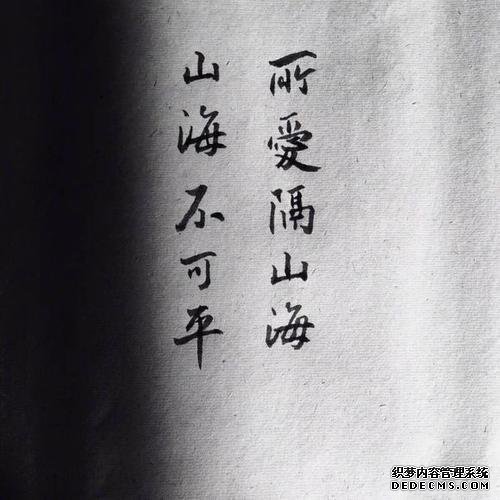 所愛隔山海
山海不可平
织梦内容管理系统
DEDECMS.COM